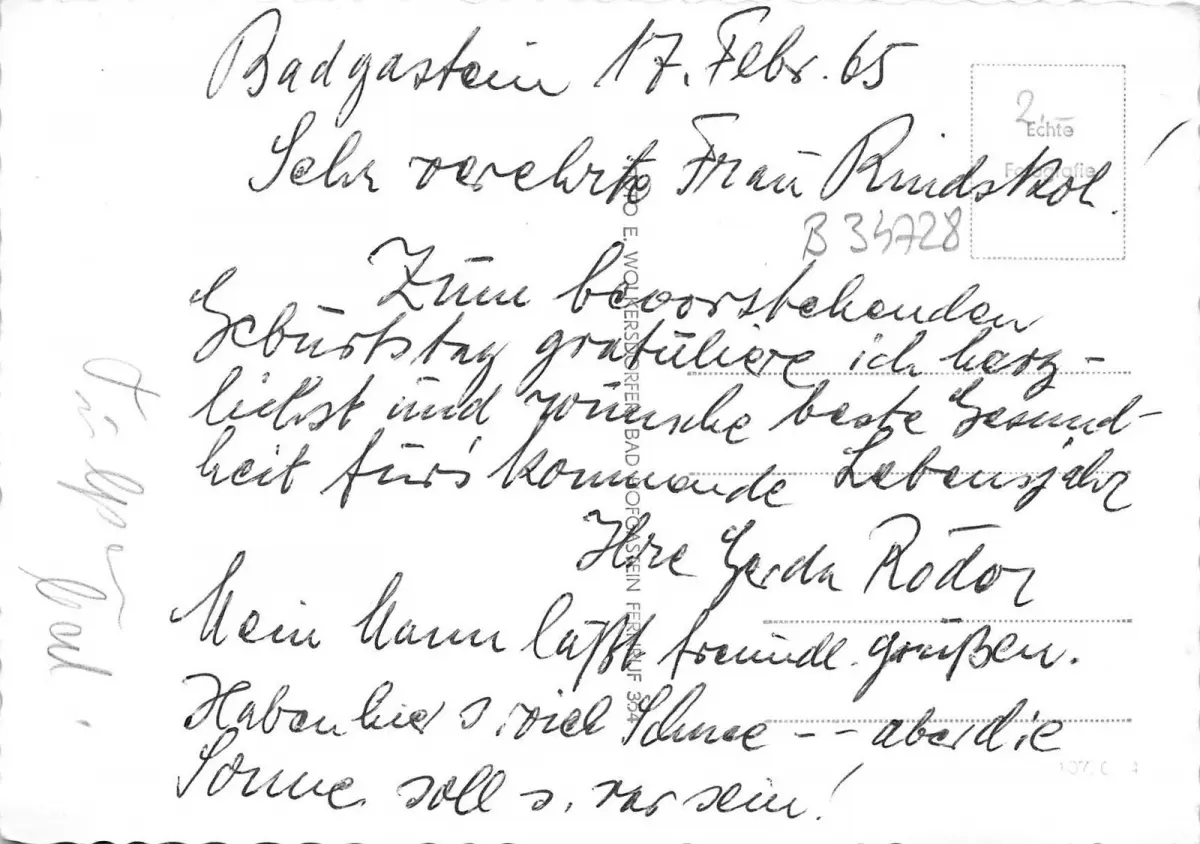 Badgastein 17. Febr. 65
Sehr verehrte Frau Rindskol!
Zum bevorstehenden
Geburtstag gratuliere ich herz-
lichst und wünsche beste Gesund-
heit für's kommende Lebensjahr
Ihre Gerda
Mein Mann läßt freundl. grüßen.
Haben hier s. viel Schnee -- aber die
Sonne soll s. rar sein!
2.-
Echte
Fotografie
B 34728
E. WOLKERSDORFER, BAD HOFGASTEIN FERNRUF 364